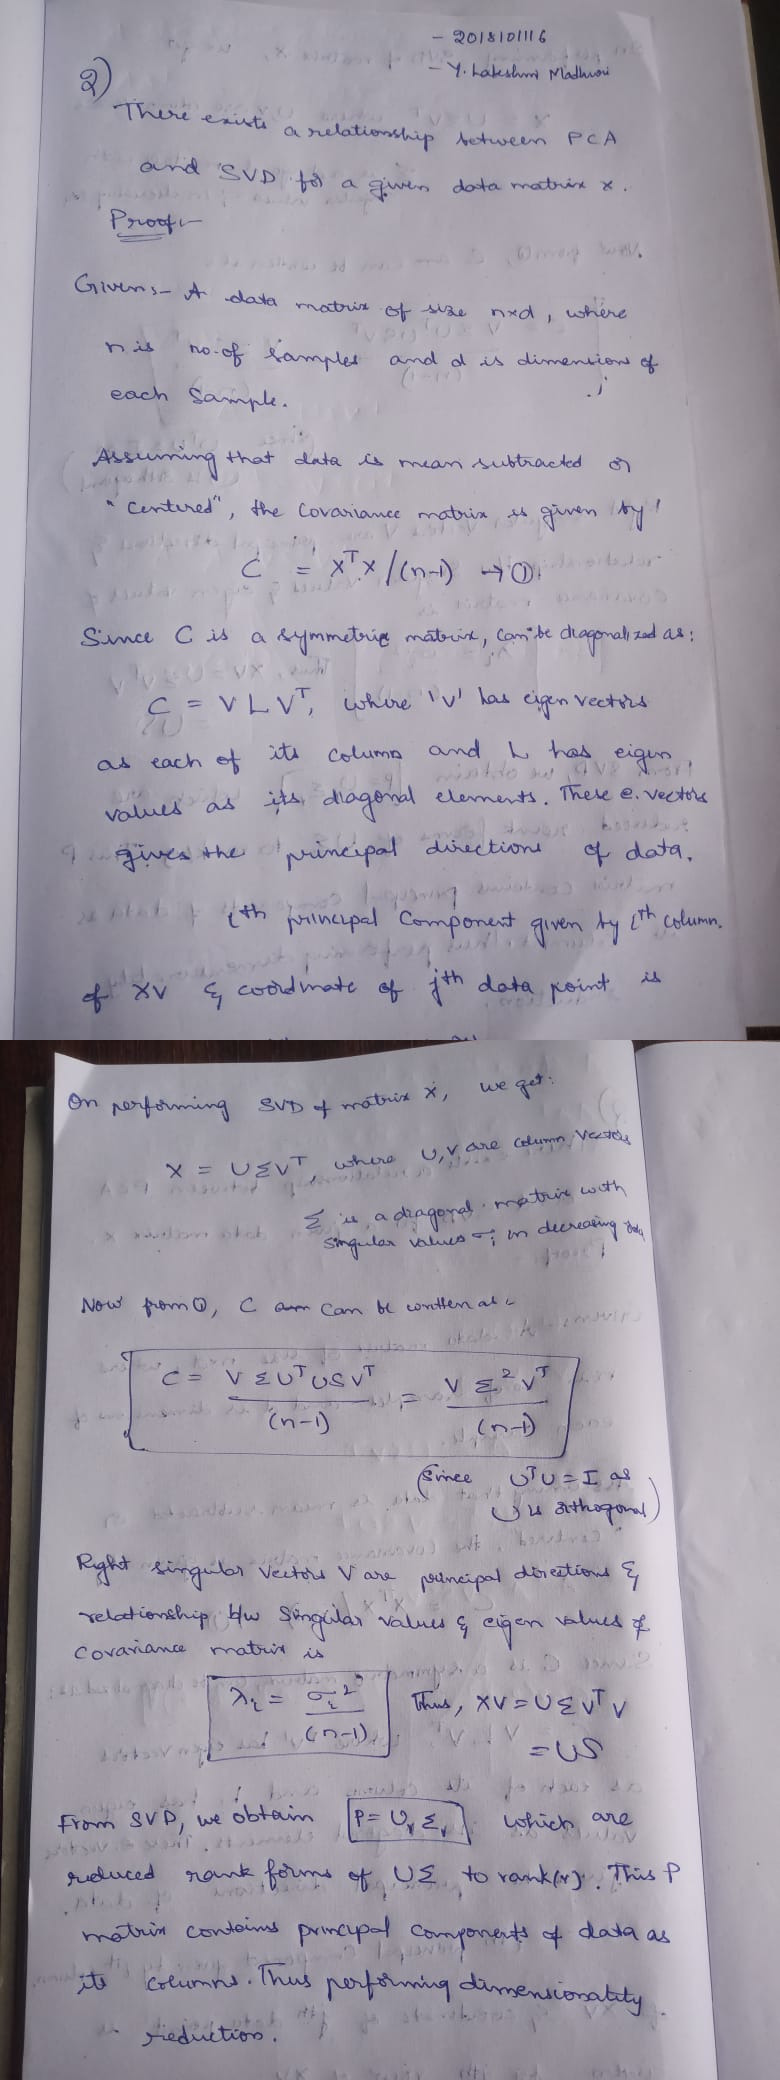 - 2018101116
- Y. Lakshmi Madhuri
2)
There exists a relationship between PCA
and SVD for a given data matrix x.
Proof:-
Given:- A data matrix of size n×d, where
n is no. of samples and d is dimension of
each sample.
Assuming that data is mean subtracted or
"centered", the covariance matrix is given by
C = X^T X /(n-1) → ①
Since C is a symmetric matrix, can be diagonalized as:
C = V L V^T, where 'V' has eigen vectors
as each of its column and L has eigen
values as its diagonal elements. These e. vectors
gives the principal directions of data.
i^th principal component given by i^th column
of XV & coordinate of j^th data point is
On performing SVD of matrix X, we get:
X = U Σ V^T, where U, V are column vectors
Σ is a diagonal matrix with
singular values σ_i in decreasing
Now from ①, C can be written as:-
C = V Σ U^T U S V^T / (n-1) = V Σ^2 V^T / (n-1)
(Since U^T U = I as
U is orthogonal)
Right singular vectors V are principal directions &
relationship b/w singular values & eigen values of
covariance matrix is
λ_i = σ_i^2 / (n-1) Thus, XV = U Σ V^T V
= US
From SVD, we obtain P = U_r Σ_r which are
reduced rank forms of UΣ to rank(r). This P
matrix contains principal components of data as
its columns. Thus performing dimensionality
reduction.